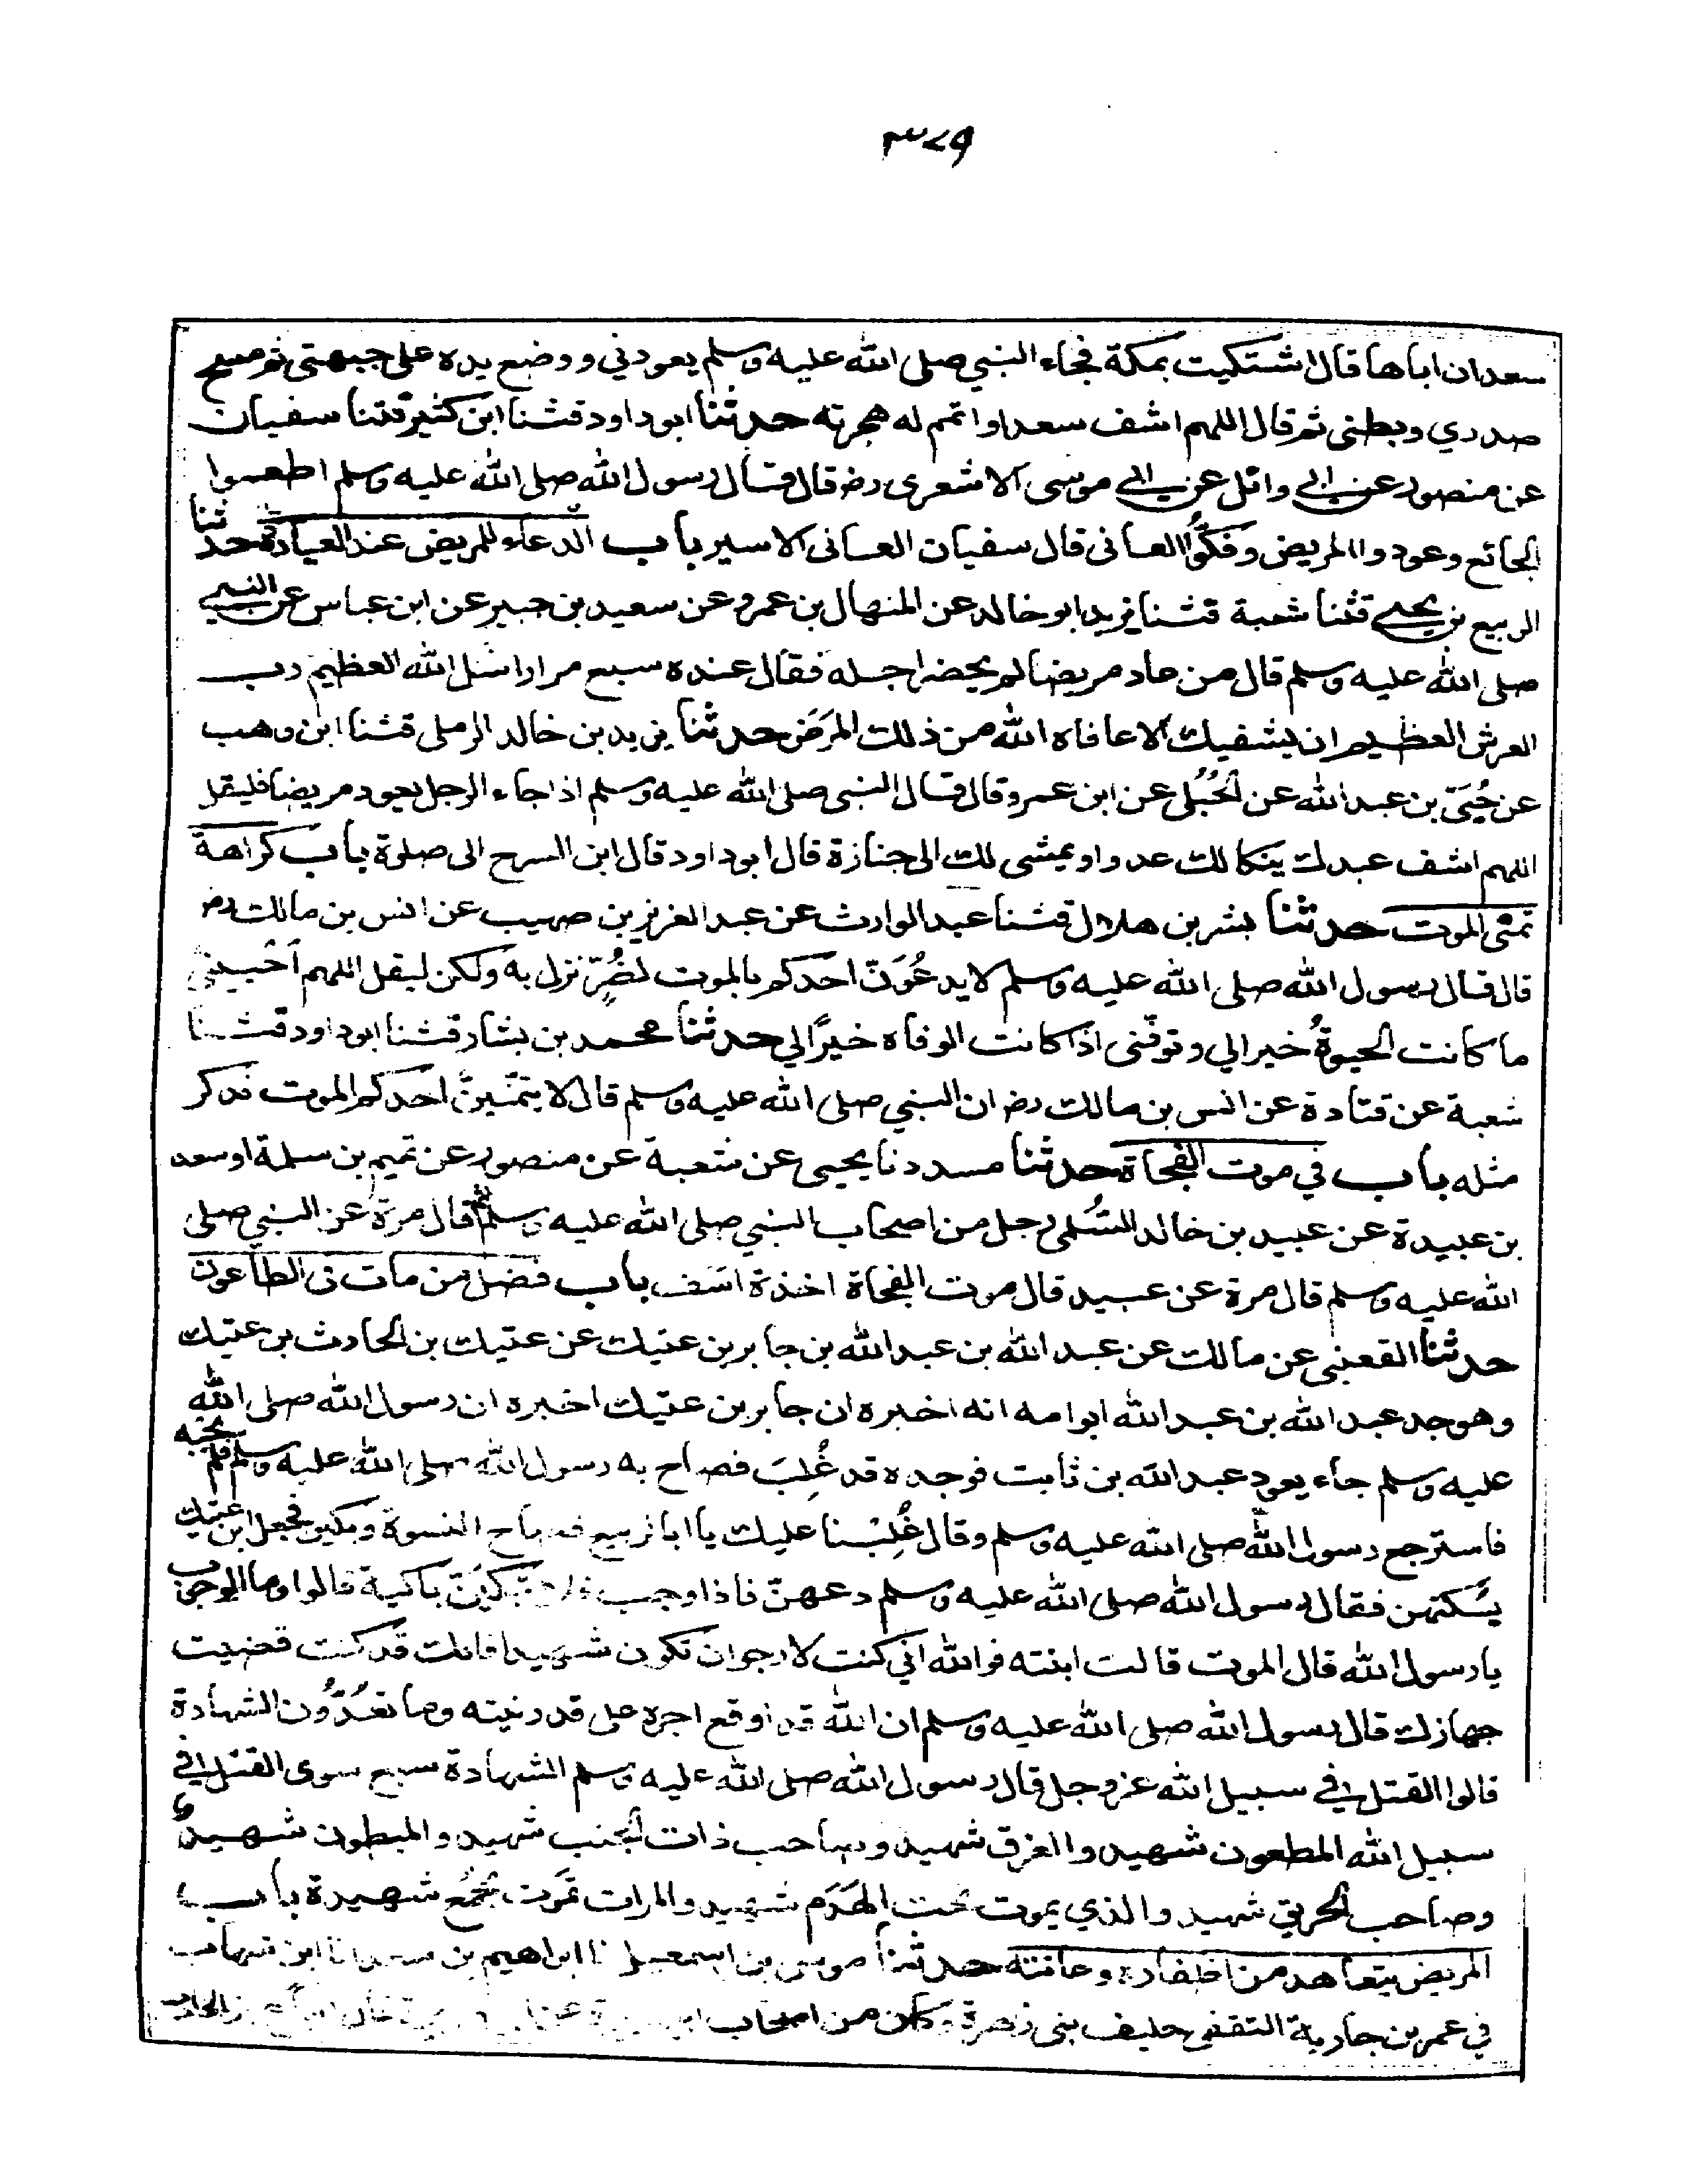 ٣٧٩
سعدان اباها قال اشتكيت بمكة فجاء النبي صلى الله عليه وسلم يعودني ووضع يده على جبهتى ثم مسح
صدري وبطنى ثم قال اللهم اشف سعدا واتمم له هجرته حدثنا ابو داود قثنا ابن كثير قثنا سفيان
عن منصور عن ابي وائل عن ابي موسى الاشعرى رضه قال قال رسول الله صلى الله عليه وسلم اطعموا
الجائع وعودوا المريض وفكّوا العانى قال سفيان العانى الاسير باب الدعاء للمريض عند العيادة حدثنا
الربيع بن يحيى قثنا شعبة قثنا يزيد ابو خالد عن المنهال بن عمرو عن سعيد بن جبير عن ابن عباس عن النبي
صلى الله عليه وسلم قال من عاد مريضا لم يحضر اجله فقال عنده سبع مرار اسئل الله العظيم رب
العرش العظيم ان يشفيك الا عافاه الله من ذلك المَرَض حدثنا يزيد بن خالد الرملى قثنا ابن وهب
عن حُيَىّ بن عبد الله عن الحُبُلى عن ابن عمرو قال قال النبى صلى الله عليه وسلم اذا جاء الرجل يعود مريضا فليقل
اللهم اشف عبدك ينكا لك عدوا او يمشى لك الى جنازة قال ابو داود قال ابن السرح الى صلوة باب كراهة
تمنى الموت حدثنا بشر بن هلال قثنا عبد الوارث عن عبد العزيز بن صهيب عن انس بن مالك رضه
قال قال رسول الله صلى الله عليه وسلم لا يدعُوَنّ احدكم بالموت لضُرٍّ نزل به ولكن ليقل اللهم اَحْيينى
ما كانت الحيوةُ خيرا لي وتوفّنى اذا كانت الوفاه خيرًا لي حدثنا محمد بن بشار قثنا ابو داود قثنا
شعبة عن قتادة عن انس بن مالك رضه ان النبي صلى الله عليه وسلم قال لا يتمنّينّ احدكم الموت فذكر
مثله باب في موت الفجاة حدثنا مسدد نا يحيى عن شعبة عن منصور عن تميم بن سلمة او سعد
بن عبيدة عن عبيد بن خالد السُّلمى رجل من اصحاب النبي صلى الله عليه وسلم قال مرة عن النبي صلى
الله عليه وسلم ثم قال مرة عن عبيد قال موت الفجاة اخذة اسَف باب فضل من مات فى الطاعون
حدثنا القعنبى عن مالك عن عبد الله بن عبد الله بن جابر بن عتيك عن عتيك بن الحارث بن عتيك
وهو جد عبد الله بن عبد الله ابو امه انه اخبره ان جابر بن عتيك اخبره ان رسول الله صلى الله
عليه وسلم جاء يعود عبد الله بن ثابت فوجده قد غُلِبَ فصاح به رسول الله صلى الله عليه وسلم فلم يجبه
فاسترجع رسول الله صلى الله عليه وسلم وقال غُلِبْنا عليك يا ابا الربيع فصاح النسوة وبكين فجعل ابن عتيك
يسَكتهن فقال رسول الله صلى الله عليه وسلم دعهنّ فاذا وجب فلا تبكيَنّ باكية قالوا وما الوجوب
يا رسول الله قال الموت قالت ابنته فوالله اني كنت لارجوان تكون شهيدا فانك قد كنت قضيت
جهازك قال رسول الله صلى الله عليه وسلم ان الله قد اوقع اجره على قدر نيته وما تَعُدُّون الشهادة
قالوا القتل في سبيل الله عز وجل قال رسول الله صلى الله عليه وسلم الشهادة سبع سوى القتل في
سبيل الله المطعون شهيد والغرق شهيد وصاحب ذات الجنب شهيد والمبطون شهيدٌ
وصاحب الحريق شهيد والذي يموت تحت الهَدَم شهيد والمرات تموت بجُمْع شهيدة باب
المريض يتعاهد من اظفاره وعانته حدثنا موسى بن اسمعيل نا ابراهيم بن سعد انا ابن شهاب
في عمر بن جارية الثقفى حليف بنى زهرة وكان من اصحاب